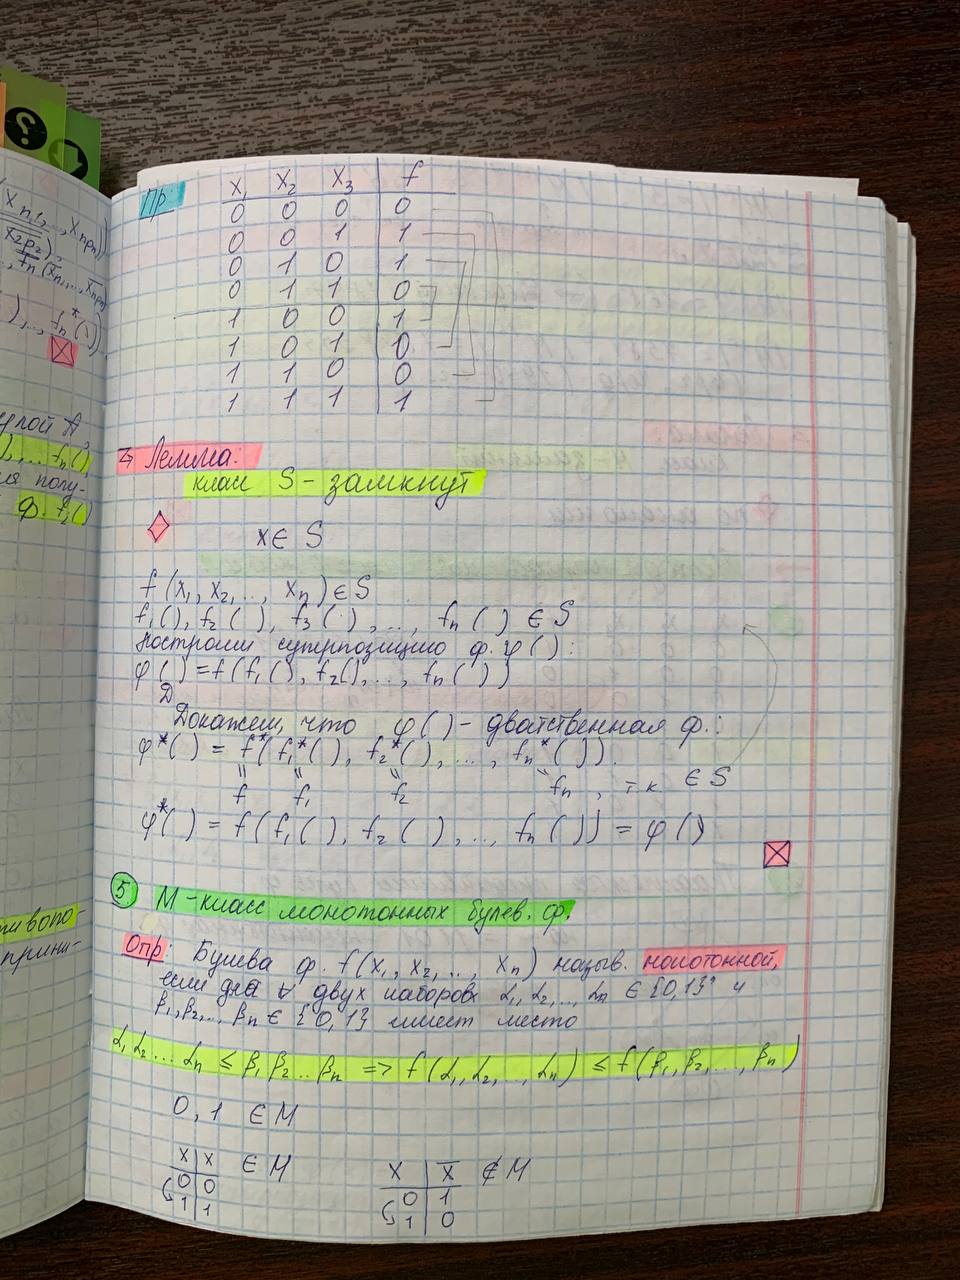 Xn(,.., Xnpn))
X2p2),
fn(x̄n,..., x̄npn)
),.., fn*())
улой A,
), ... fn()
ия полу-
ф. f2()
тивопо-
прини-
Пр
X1 X2 X3 f
0 0 0 0
0 0 1 1
0 1 0 1
0 1 1 0
1 0 0 1
1 0 1 0
1 1 0 0
1 1 1 1
Лемма:
класс S - замкнут
x ∈ S
f(x1, x2,.., xn) ∈ S
f1(), f2(), f3(),..., fn() ∈ S
Построим суперпозицию ф. φ():
φ() = f(f1(), f2(),..., fn())
D
Докажем, что φ() - двойственная ф.:
φ*() = f*(f1*(), f2*(), ..., fn*()).
" " " "
f f1 f2 fn, т.к. ∈ S
φ*() = f(f1(), f2(), ..., fn()) = φ()
5 M - класс монотонных булев. ф.
Опр: Булева ф. f(x1, x2,.., xn) назыв. монотонной,
если для ∀ двух наборов α1, α2,.., αn ∈ {0,1} и
β1, β2,.. βn ∈ {0,1} имеет место
α1 α2 ... αn ≤ β1 β2 .. βn => f(α1, α2,.., αn) ≤ f(β1, β2,..., βn)
0, 1 ∈ M
x x ∈ M
0 0
1 1
x x̄ ∉ M
0 1
1 0